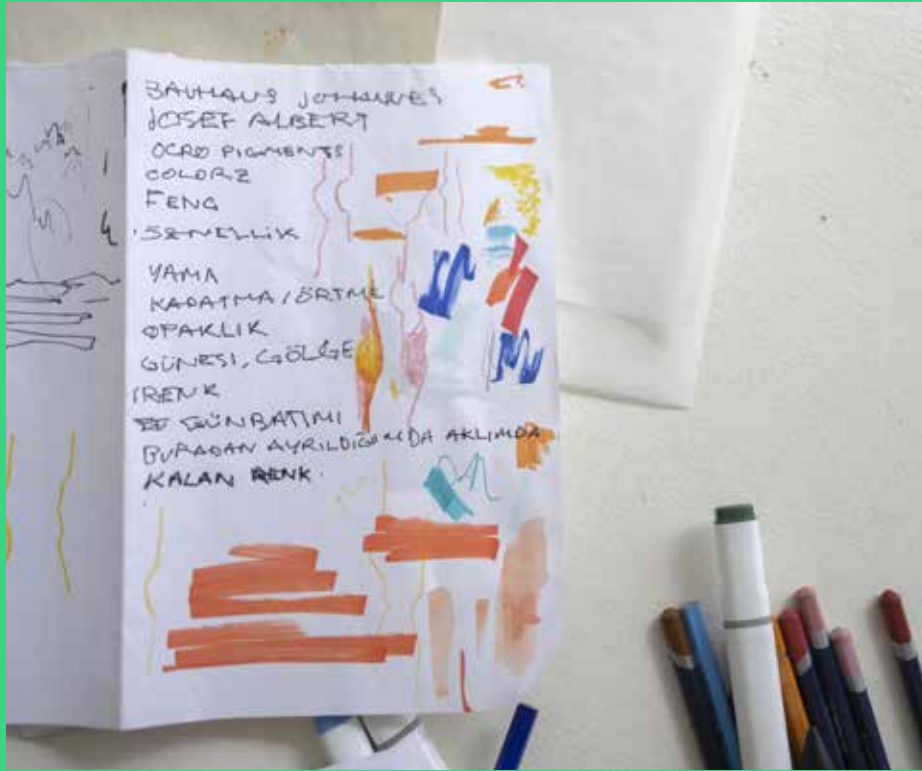 BAUHAUS JOHANNES
JOSEF ALBERT
OCRO PIGMENTS
COLORZ
FENG
SENELLİK
YAMA
KAPATMA / ÖRTME
OPAKLIK
GÜNEŞI, GÖLGE
RENK
GÜNBATIMI
BURADAN AYRILDIĞIMDA AKLIMDA
KALAN RENK.